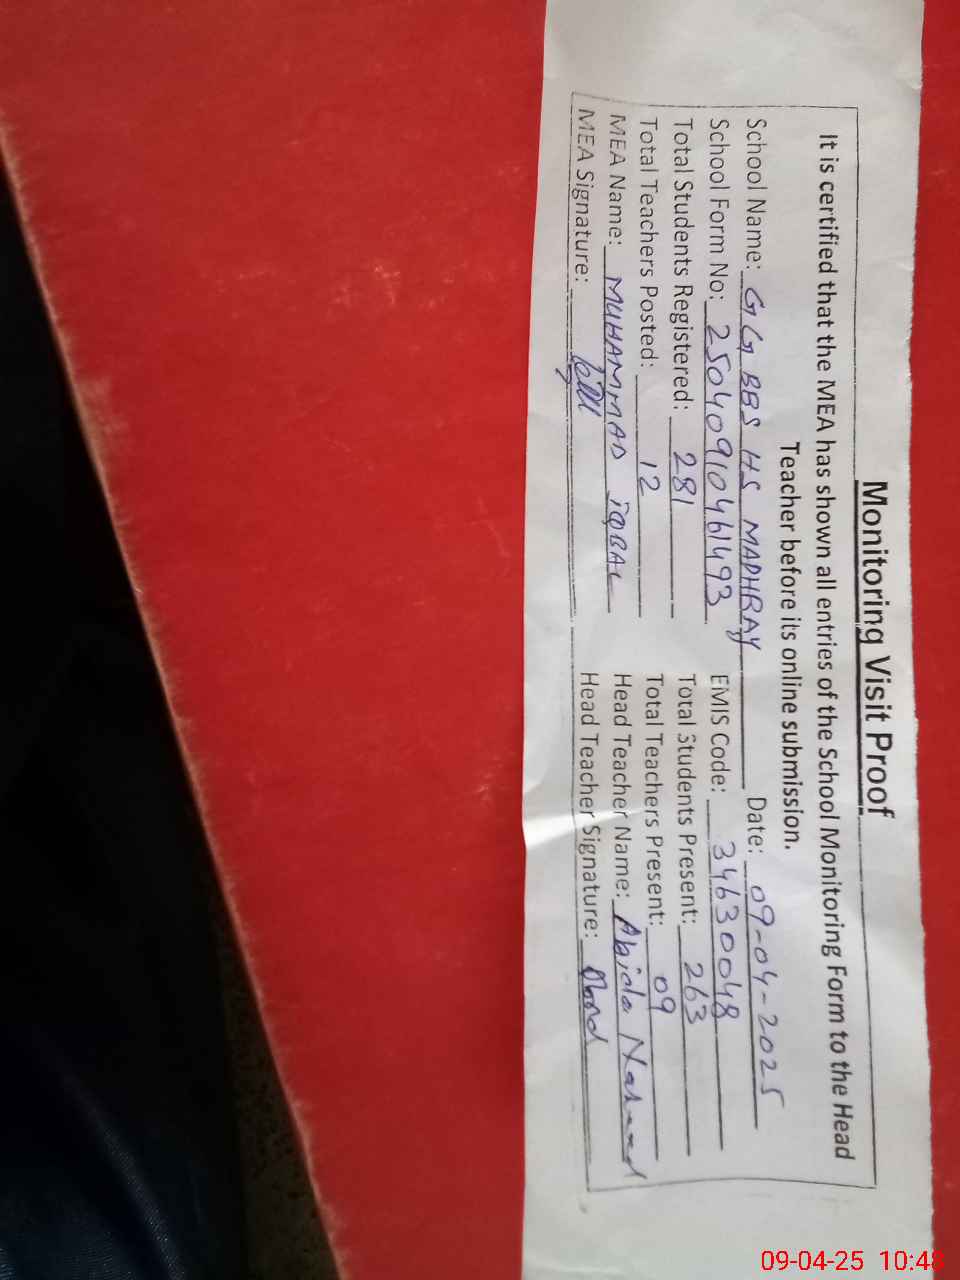 Monitoring Visit Proof
It is certified that the MEA has shown all entries of the School Monitoring Form to the Head
Teacher before its online submission.
School Name: GG BBS HS MADHRAY Date: 09-04-2025
School Form No: 25040910461493 EMIS Code: 34630048
Total Students Registered: 281 Total Students Present: 263
Total Teachers Posted: 12 Total Teachers Present: 09
MEA Name: MUHAMMAD IQBAL Head Teacher Name: Abida
MEA Signature: Head Teacher Signature:
09-04-25 10:48